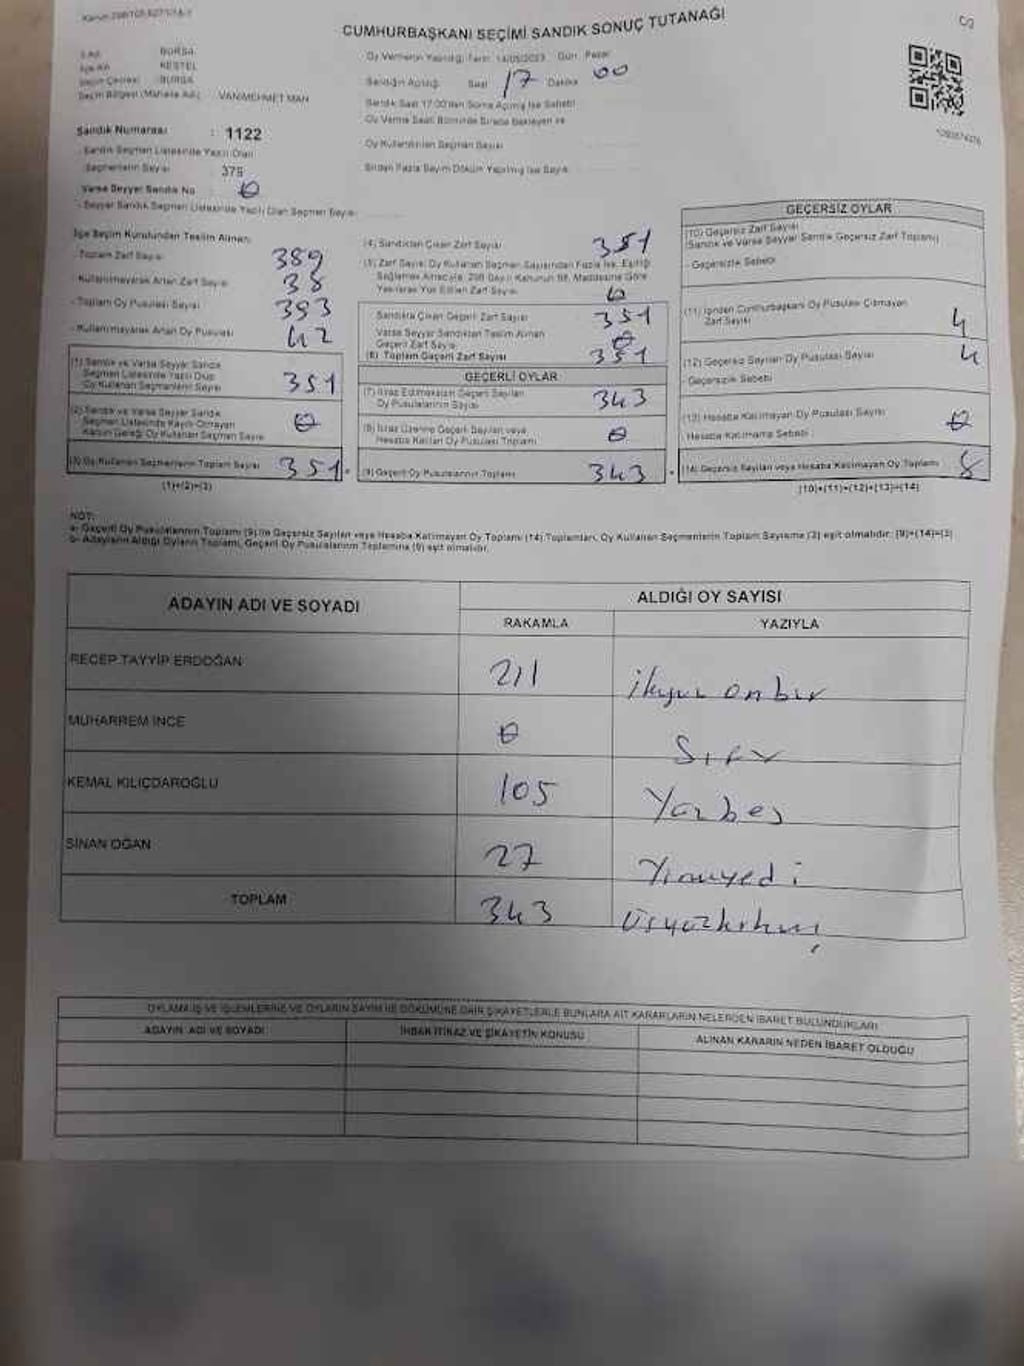 CUMHURBAŞKANI SEÇİMİ SANDIK SONUÇ TUTANAĞI
Oy Vermenin Yapıldığı Tarih: 14/05/2023 Gün: Pazar
İli BURSA
KESTEL
Seçim Çevresi BURSA
Seçim Bölgesi (Mahalle Adı) VANİMEHMET MAH
Sandığın Açıldığı Saat 17 Dakika 00
Sandık Saat 17.00'den Sonra Açılmış İse Sebebi
Oy Verme Saati Bitiminde Sırada Bekleyen ve
Oy Kullandırılan Seçmen Sayısı
Birden Fazla Sayım Döküm Yapılmış İse Sayısı
Sandık Numarası : 1122
Sandık Seçmen Listesinde Yazılı Olan
Seçmenlerin Sayısı 375
Varsa Seyyar Sandık No 0
- Seyyar Sandık Seçmen Listesinde Yazılı Olan Seçmen Sayısı
İlçe Seçim Kurulundan Teslim Alınan:
- Toplam Zarf Sayısı 389
- Kullanılmayarak Artan Zarf Sayısı 38
- Toplam Oy Pusulası Sayısı 393
- Kullanılmayarak Artan Oy Pusulası 42
(1) Sandık ve Varsa Seyyar Sandık
Seçmen Listesinde Yazılı Olup
Oy Kullanan Seçmenlerin Sayısı 351
(2) Sandık ve Varsa Seyyar Sandık
Seçmen Listesinde Kayıtlı Olmayan
Kanun Gereği Oy Kullanan Seçmen Sayısı 0
(3) Oy Kullanan Seçmenlerin Toplam Sayısı 351
(1)+(2)=(3)
(4) Sandıktan Çıkan Zarf Sayısı 351
(5) Zarf Sayısı Oy Kullanan Seçmen Sayısından Fazla İse, Eşitliği
Sağlamak Amacıyla, 298 Sayılı Kanunun 98. Maddesine Göre
Yakılarak Yok Edilen Zarf Sayısı 0
Sandıkta Çıkan Geçerli Zarf Sayısı 351
Varsa Seyyar Sandıktan Teslim Alınan
Geçerli Zarf Sayısı 0
(6) Toplam Geçerli Zarf Sayısı 351
GEÇERLİ OYLAR
(7) İtiraz Edilmeksizin Geçerli Sayılan
Oy Pusulalarının Sayısı 343
(8) İtiraz Üzerine Geçerli Sayılan veya
Hesaba Katılan Oy Pusulası Toplamı 0
(9) Geçerli Oy Pusulalarının Toplamı 343
GEÇERSİZ OYLAR
(10) Geçersiz Zarf Sayısı
(Sandık ve Varsa Seyyar Sandık Geçersiz Zarf Toplamı)
- Geçersizlik Sebebi
(11) İçinden Cumhurbaşkanı Oy Pusulası Çıkmayan
Zarf Sayısı 4
(12) Geçersiz Sayılan Oy Pusulası Sayısı 4
- Geçersizlik Sebebi
(13) Hesaba Katılmayan Oy Pusulası Sayısı 0
Hesaba Katılmama Sebebi
(14) Geçersiz Sayılan veya Hesaba Katılmayan Oy Toplamı 8
(10)+(11)+(12)+(13)=(14)
NOT:
a- Geçerli Oy Pusulalarının Toplamı (9) ile Geçersiz Sayılan veya Hesaba Katılmayan Oy Toplamı (14) Toplamları, Oy Kullanan Seçmenlerin Toplam Sayısına (3) eşit olmalıdır. (9)+(14)=(3)
b- Adayların Aldığı Oyların Toplamı, Geçerli Oy Pusulalarının Toplamına (9) eşit olmalıdır.
ADAYIN ADI VE SOYADI ALDIĞI OY SAYISI
RAKAMLA YAZIYLA
RECEP TAYYİP ERDOĞAN 211 ikiyüz onbir
MUHARREM İNCE 0 Sıfır
KEMAL KILIÇDAROĞLU 105 Yüzbeş
SİNAN OĞAN 27 Yirmiyedi
TOPLAM 343 Üçyüzkırküç
OYLAMA İŞ VE İŞLEMLERİNE VE OYLARIN SAYIM VE DÖKÜMÜNE DAİR ŞİKAYETLERLE BUNLARA AİT KARARLARIN NELERDEN İBARET BULUNDUKLARI
ADAYIN ADI VE SOYADI İHBAR İTİRAZ VE ŞİKAYETİN KONUSU ALINAN KARARIN NEDEN İBARET OLDUĞU